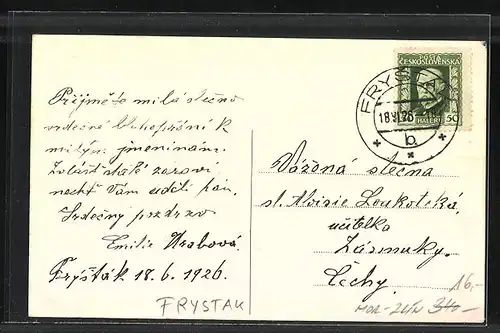 Přijměte milá slečno
srdečné blahopřání k
milým jmeninám.
Zvláště stálé zdraví
nechť Vám udělí Pán.
Srdečný pozdrav
Emilie Hrabová.
Fryšták 18.6.1926.
FRYSTAK
POŠTA
ČESKOSLOVENSKÁ
HALÉŘŮ
50
FRYŠTÁK
18.VI.26
b
Vážená slečna
sl. Aloisie Loukotská,
učitelka
Zásmuky.
Čechy.
16,-
MOR-ZLÍN